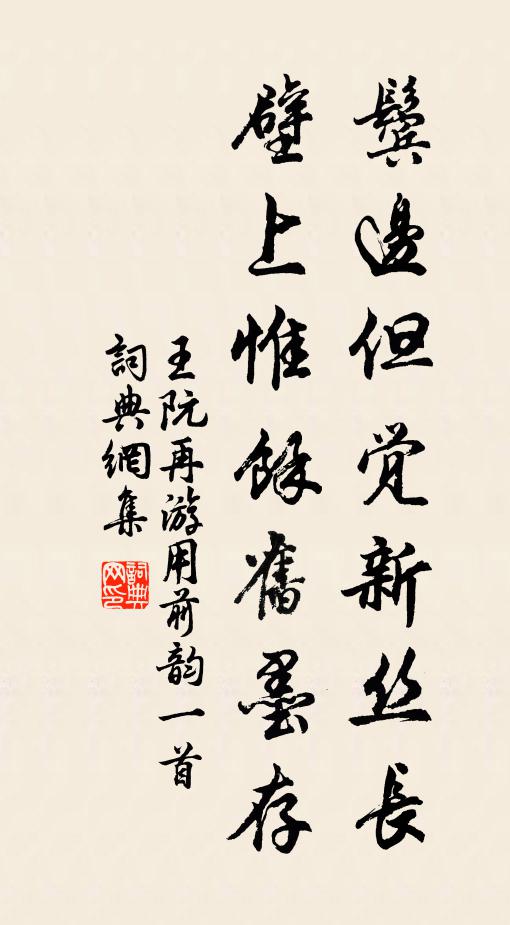 鬢邊但觉新丝長
壁上惟餘舊墨存
王阮再游用前韵一首
詞典網集
詞典网印